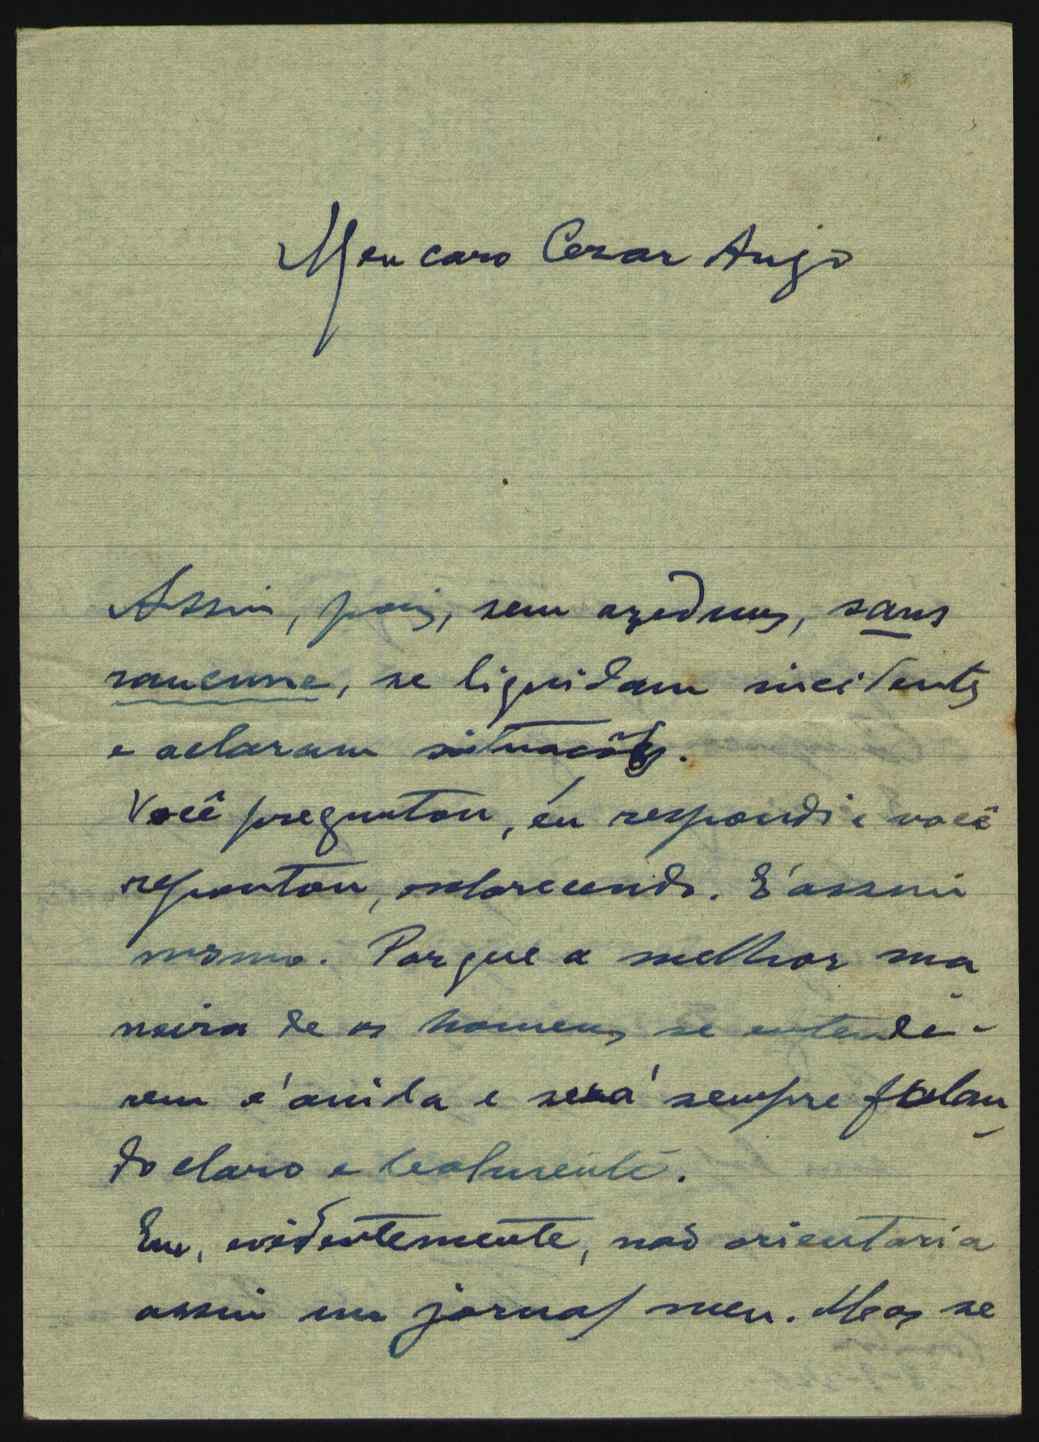 Meu caro Cezar Anjo
Assim, pois, sem azedumes, sans
rancune, se liquidam incidentes
e aclaram situações.
Você preguntou, eu respondi e você
repontou, esclarecendo. E' assim
mesmo. Porque a melhor ma
neira de os homens se entende-
rem é ainda e será sempre falan
do claro e lealmente.
Eu, evidentemente, não orientaria
assim um jornal meu. Mas se